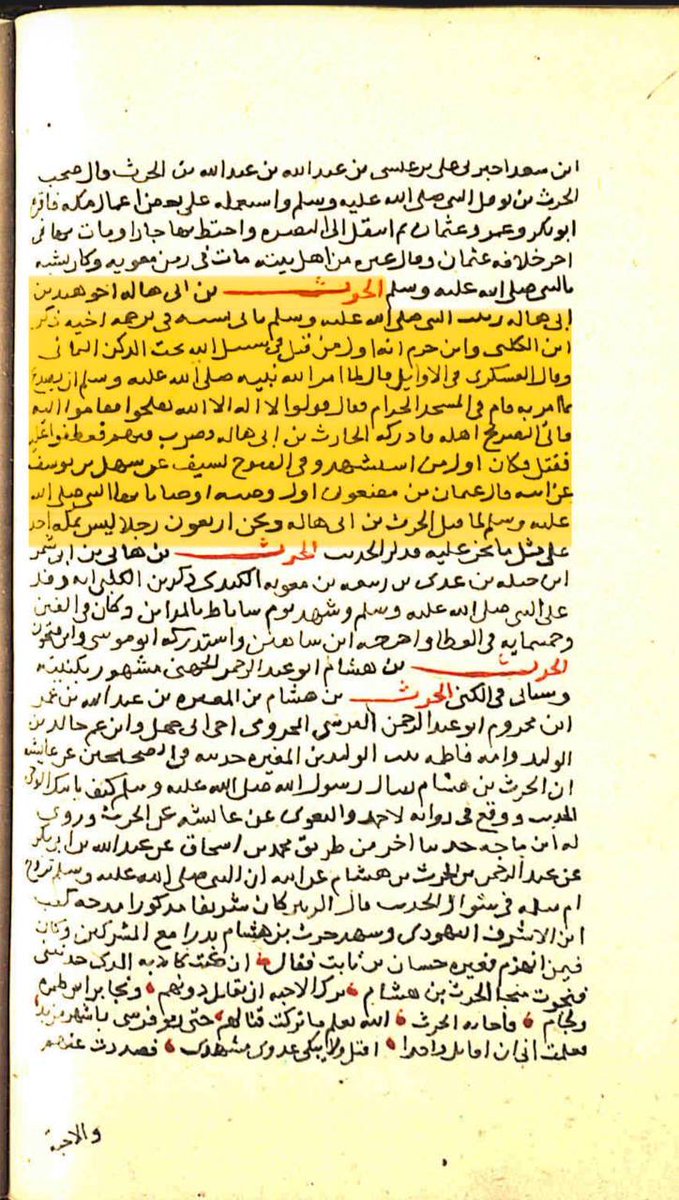 ابن سعد اخبرنى على بن عيسى بن عبدالله بن عبدالله بن الحرث قال صحب
الحرث بن نوفل النبى صلى الله عليه وسلم واستعمله على بعض اعمال مكه فاقره
ابوبكر وعمر وعثمان ثم انتقل الى البصره واختط بها دارا ومات بها فى
اخر خلافه عثمان وقال غيره من اهل بيته مات فى زمن معويه وكان يشبه
بالنبى صلى الله عليه وسلم الحرث بن ابى هاله اخو هند بن
ابى هاله ربيب النبى صلى الله عليه وسلم ياتى نسبه فى ترجمه اخيه ذكر
ابن الكلبى وابن حزم انه اول من قتل فى سبيل الله تحت الركن اليمانى
وقال العسكرى فى الاوايل قال لما امر الله نبيه صلى الله عليه وسلم ان يصدع
بما امر به قام فى المسجد الحرام فقال قولوا لا اله الا الله تفلحوا فقاموا اليه
فاتى الصريخ اهله فادركه الحارث بن ابى هاله فضرب فيهم فعطفوا عليه
فقتل فكان اول من استشهد وفى الفتوح لسيف عن سهل بن يوسف
عن ابيه قال عثمان بن مضعون اول وصيه اوصانا بها النبى صلى الله
عليه وسلم لما قتل الحرث بن ابى هاله ونحن اربعون رجلا ليس بمكه احد
على مثل ما نحن عليه فذكر الحديث الحرث بن هانى بن ابى شمر
ابن جبله بن عدى بن ربيعه بن معويه الكندى ذكر بن الكلبى انه وفد
على النبى صلى الله عليه وسلم وشهد يوم ساباط بالمداين وكان فى الفين
وخمسمايه فى العطا واخرجه ابن شاهين واستدركه ابو موسى وابن فتحون
الحرث بن هشام ابو عبد الرحمن الجهنى مشهور بكنيته
وسياتى فى الكنى الحرث بن هشام بن المغيره بن عبد الله بن عمر
ابن مخزوم ابو عبد الرحمن القرشى المخزومى اخو ابى جهل وابن عم خالد بن
الوليد وامه فاطمه بنت الوليد بن المغيره حديثه فى الصحيحين عن عايشه
ان الحرث بن هشام سال رسول الله صلى الله عليه وسلم كيف ياتيك الوحى
الحديث ووقع فى روايه لاحمد والبغوى عن عائشه عن الحرث وروى
له ابن ماجه حديثا اخر من طريق محمد بن اسحاق عن عبدالله بن ابى بكر
عن عبد الرحمن بن الحرث بن هشام عن ابيه ان النبى صلى الله عليه وسلم تزوج
ام سلمه فى شوال الحديث قال الزبير كان شريفا مذكورا مدحه كعب
ابن الاشرف اليهودى وشهد حرث بن هشام بدرا مع المشركين وكان
فيمن انهزم فعيره حسان بن ثابت فقال ان كنت كاذبه الذى حدثتنى
فنجوت منجا الحرث بن هشام ترك الاحبه ان يقاتل دونهم ونجا براس طمره
ولجام فاجابه الحرث الله يعلم ما تركت قتالهم حتى رموا فرسى باشقر مزبد
فعلمت انى ان اقاتل واحدا اقتل ولا يبكى عدوى مشهدى فصددت عنهم
والاحبة